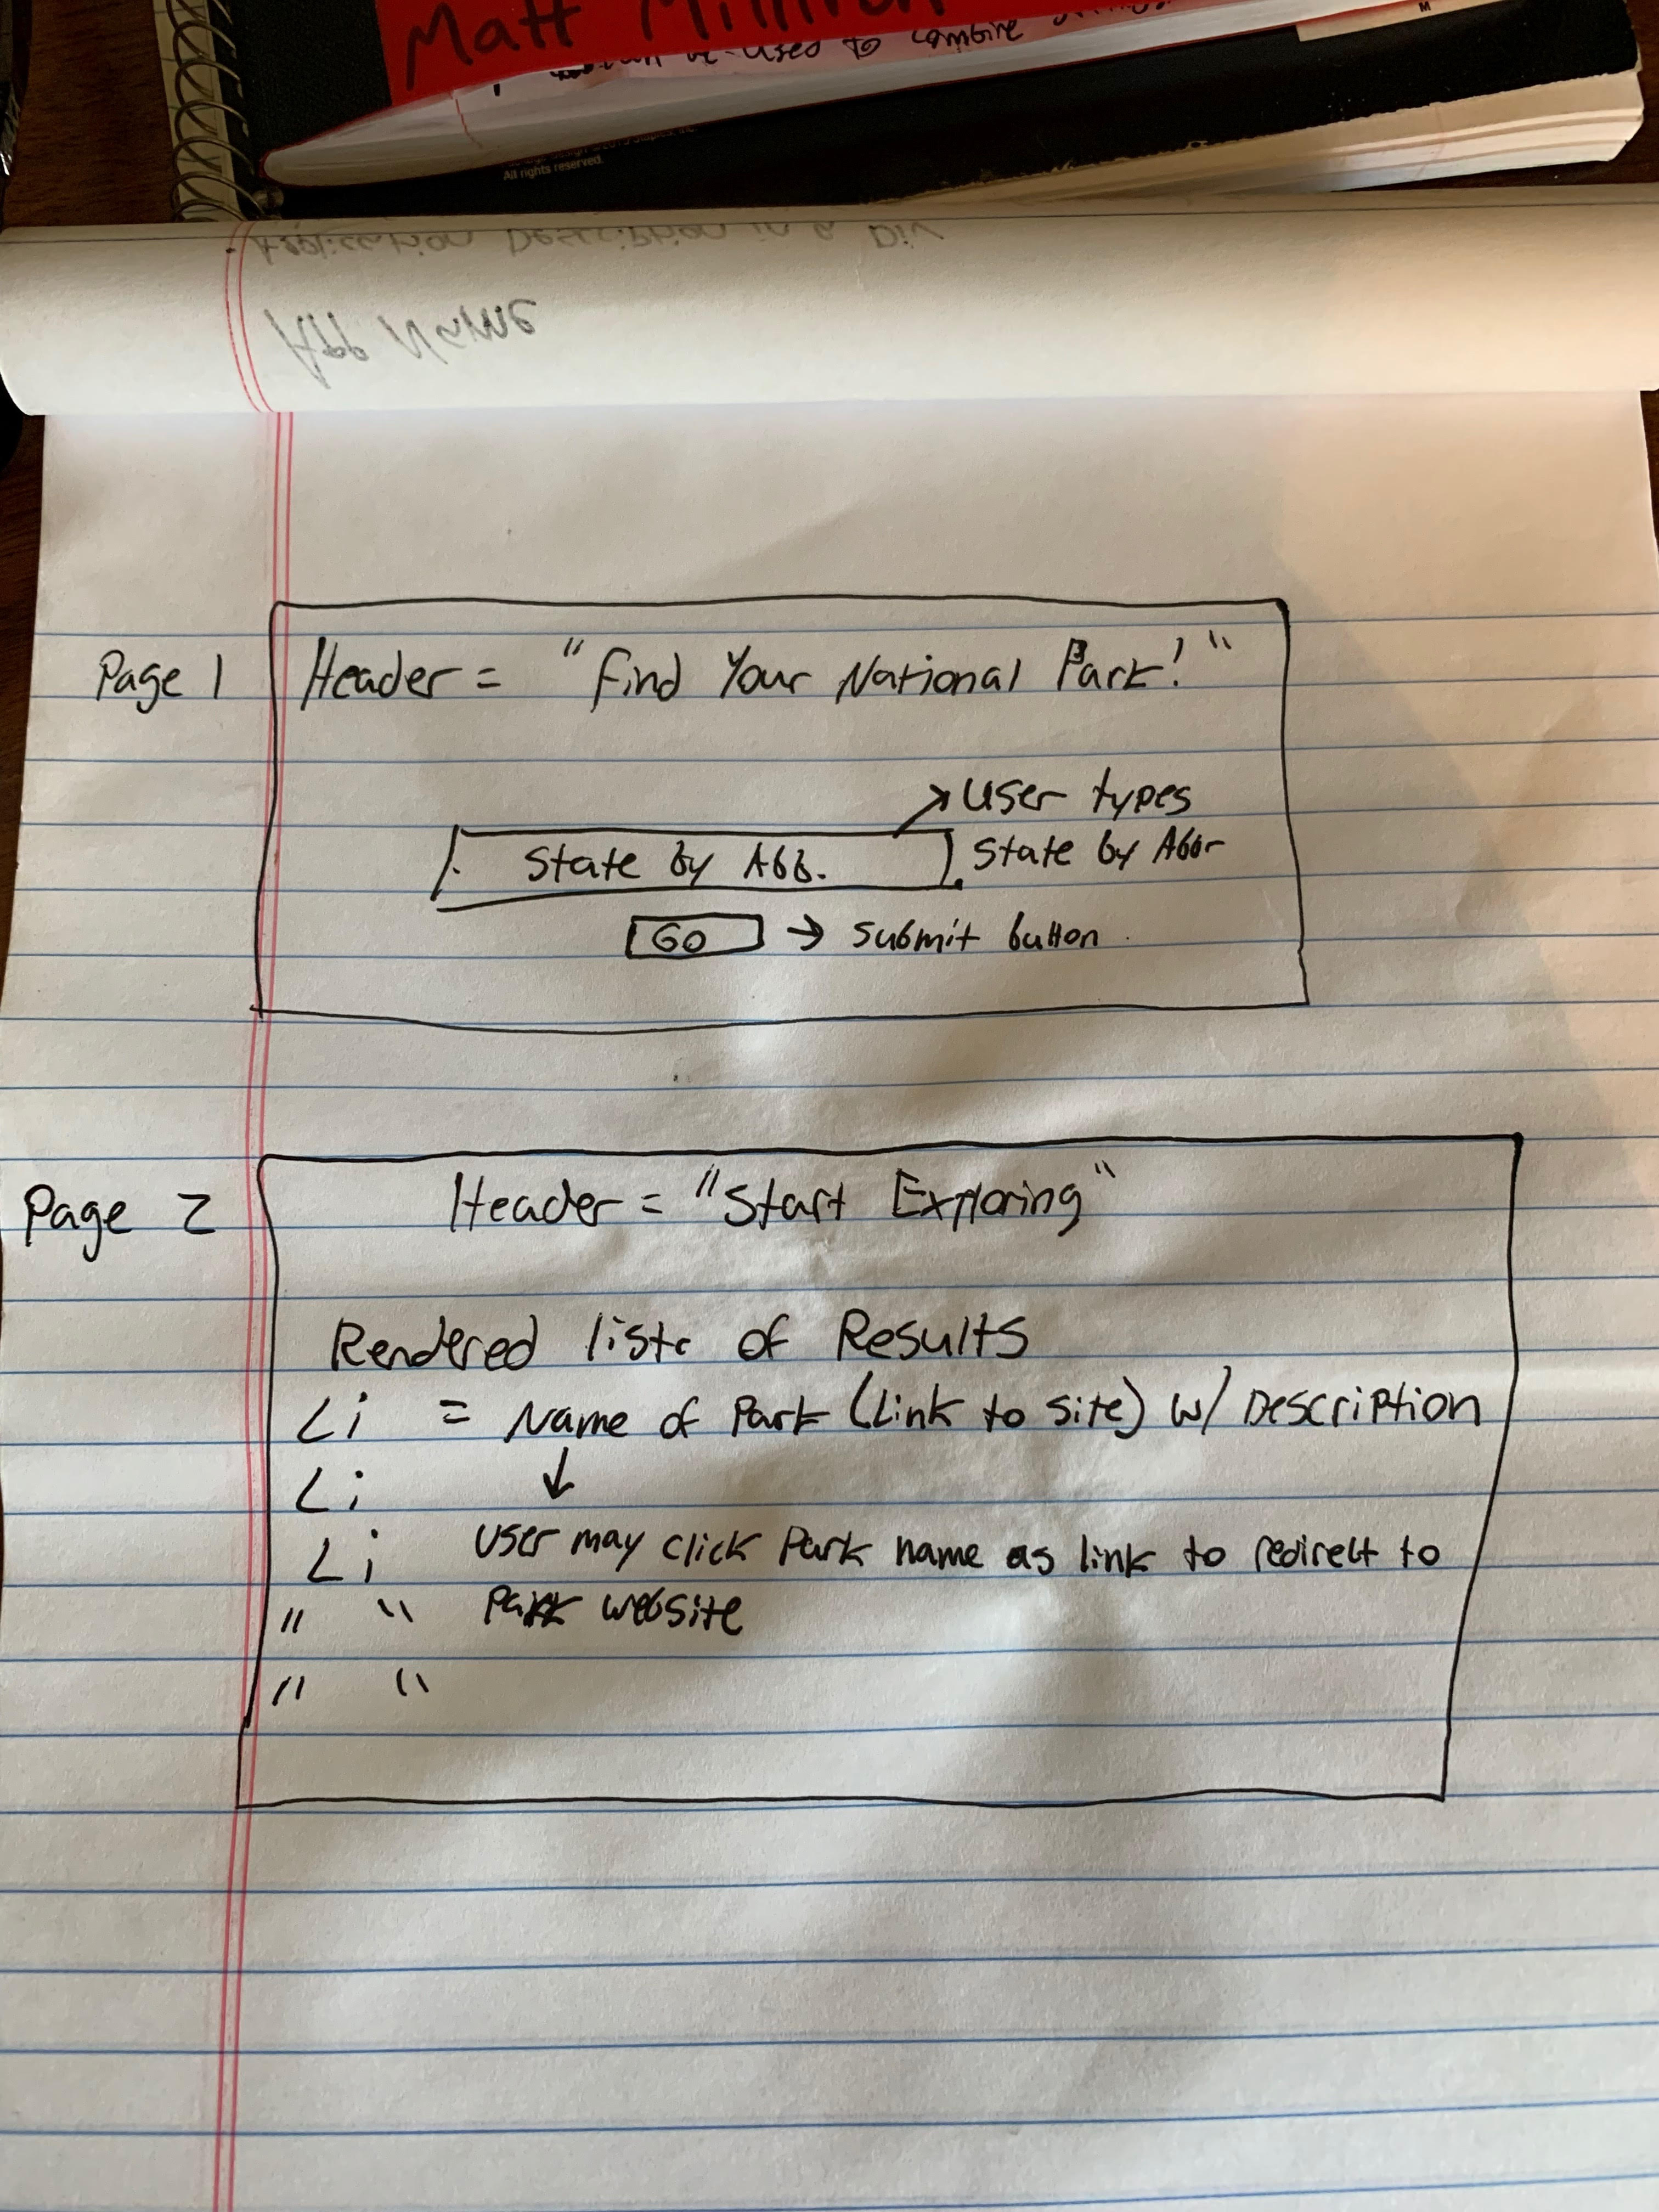 Matt
used to combine
All rights reserved.
Application Description in a Div
App Name
Page 1
Header = "Find Your National Park!"
User types
State by Abb.
State by Abbr
GO → submit button
Page 2
Header = "Start Exploring"
Rendered list of Results
Li = Name of Park (Link to site) w/ Description
Li ↓
Li User may click Park name as link to redirect to
" " Park website
" "